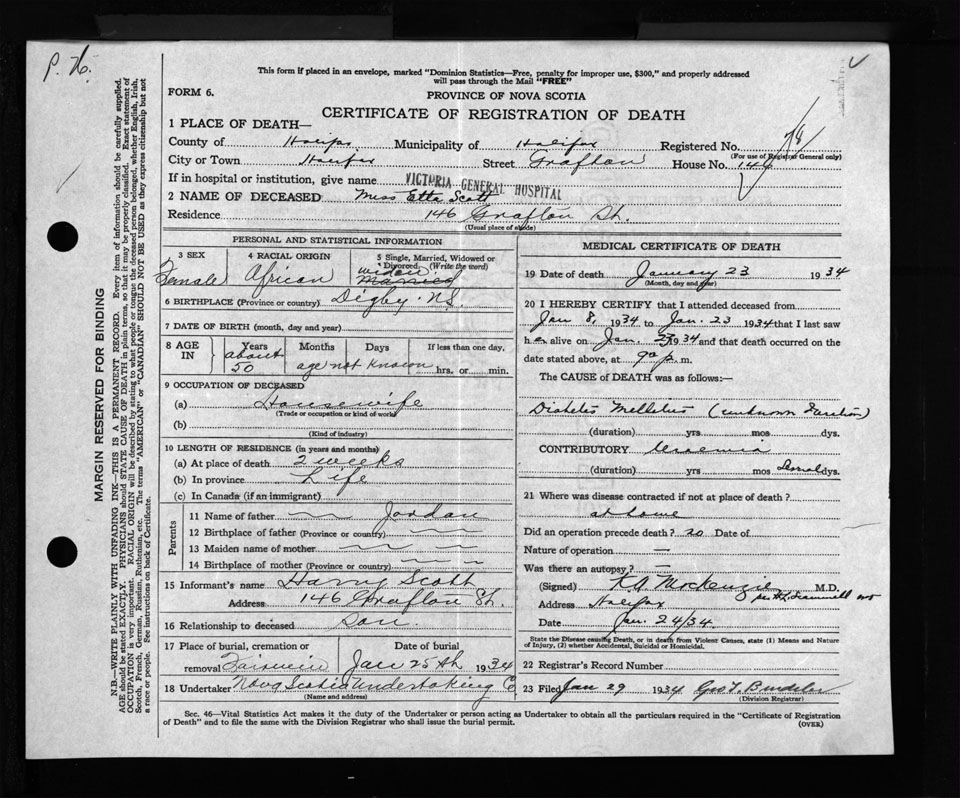 P. H.
This form if placed in an envelope, marked "Dominion Statistics—Free, penalty for improper use, $300," and properly addressed
will pass through the Mail "FREE"
FORM 6.
PROVINCE OF NOVA SCOTIA
CERTIFICATE OF REGISTRATION OF DEATH
1 PLACE OF DEATH—
County of Halifax Municipality of Halifax Registered No. 78
(For use of Registrar General only)
City or Town Halifax Street Grafton House No. 146
If in hospital or institution, give name VICTORIA GENERAL HOSPITAL
2 NAME OF DECEASED Miss Etta Scott
Residence 146 Grafton St.
(Usual place of abode)
PERSONAL AND STATISTICAL INFORMATION
3 SEX
Female
4 RACIAL ORIGIN
African
5 Single, Married, Widowed or
Divorced. (Write the word)
Widow
Married
6 BIRTHPLACE (Province or country) Digby N.S.
7 DATE OF BIRTH (month, day and year)
8 AGE IN Years Months Days If less than one day,
about 50 age not known hrs. or min.
9 OCCUPATION OF DECEASED
(a) Housewife
(Trade or occupation or kind of work)
(b)
(Kind of industry)
10 LENGTH OF RESIDENCE (in years and months)
(a) At place of death 2 weeks
(b) In province Life
(c) In Canada (if an immigrant)
Parents
11 Name of father — Jordan
12 Birthplace of father (Province or country) — —
13 Maiden name of mother — — —
14 Birthplace of mother (Province or country) — —
15 Informant's name Harry Scott
Address 146 Grafton St.
16 Relationship to deceased Son.
17 Place of burial, cremation or removal Fairview
Date of burial Jan 25th 1934
18 Undertaker Nova Scotia Undertaking Co
(Name and address)
MEDICAL CERTIFICATE OF DEATH
19 Date of death January 23 1934
(Month, day and year)
20 I HEREBY CERTIFY that I attended deceased from
Jan 8, 1934 to Jan. 23 1934 that I last saw
her alive on Jan. 23 1934 and that death occurred on the
date stated above, at 9 p. m.
The CAUSE of DEATH was as follows:—
Diabetes Mellitus (unknown duration)
(duration) yrs mos dys.
CONTRIBUTORY Uraemia
(duration) yrs mos Several dys.
21 Where was disease contracted if not at place of death?
at home
Did an operation precede death? no Date of
Nature of operation —
Was there an autopsy? —
(Signed) K A MacKenzie M.D.
Address Halifax
Date Jan. 24/34.
State the Disease causing Death, or in death from Violent Causes, state (1) Means and Nature
of Injury, (2) whether Accidental, Suicidal or Homicidal.
22 Registrar's Record Number
23 Filed Jan 29 1934 Geo T.
(Division Registrar)
Sec. 46—Vital Statistics Act makes it the duty of the Undertaker or person acting as Undertaker to obtain all the particulars required in the "Certificate of Registration
of Death" and to file the same with the Division Registrar who shall issue the burial permit.
(OVER)
MARGIN RESERVED FOR BINDING
N.B.—WRITE PLAINLY WITH UNFADING INK—THIS IS A PERMANENT RECORD. Every item of information should be carefully supplied.
AGE should be stated EXACTLY. PHYSICIANS should STATE CAUSE OF DEATH in plain terms, so that it may be properly classified. Exact statement of
OCCUPATION is very important. RACIAL ORIGIN will be described by stating to what people or tongue the deceased person belonged, whether English, Irish,
Scotch, French, German, Russian, Ruthenian, etc. The terms "AMERICAN" or "CANADIAN" SHOULD NOT BE USED as they express citizenship but not
a race or people. See instructions on back of Certificate.